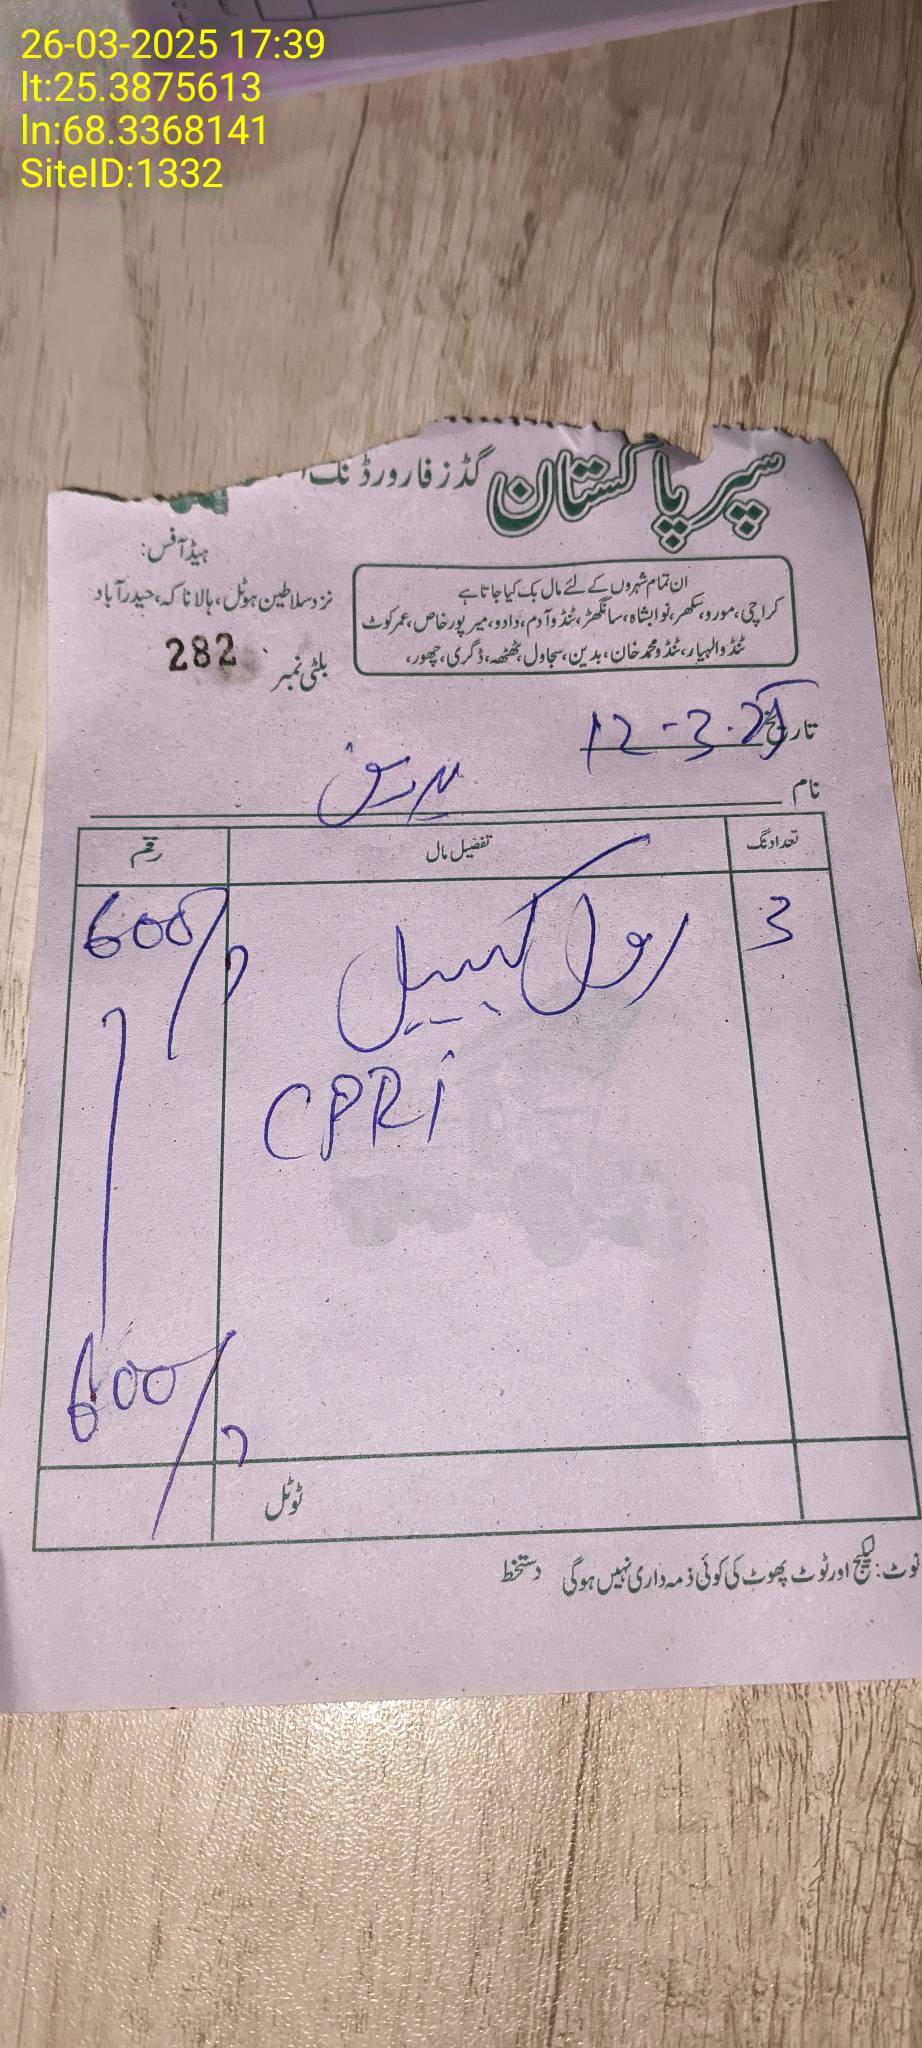 26-03-2025 17:39
lt:25.3875613
ln:68.3368141
SiteID:1332
سپر پاکستان گڈز فارورڈنگ
ہیڈ آفس:
نزد سلاطین ہوٹل، ہالا ناکہ، حیدرآباد
ان تمام شہروں کے لئے مال بک کیا جاتا ہے
کراچی، مورو، سکھر، نوابشاہ، سانگھڑ، ٹنڈو آدم، دادو، میرپورخاص، عمرکوٹ
ٹنڈوالہیار، ٹنڈو محمد خان، بدین، سجاول، ٹھٹھہ، ڈگری، چھور،
بلٹی نمبر 282
تاریخ 12-3-25
نام
تعداد نگ تفصیل مال رقم
3 رول کیبیل 600/
CPRi
600/
ٹوٹل
نوٹ: لیکیج اور ٹوٹ پھوٹ کی کوئی ذمہ داری نہیں ہوگی دستخط